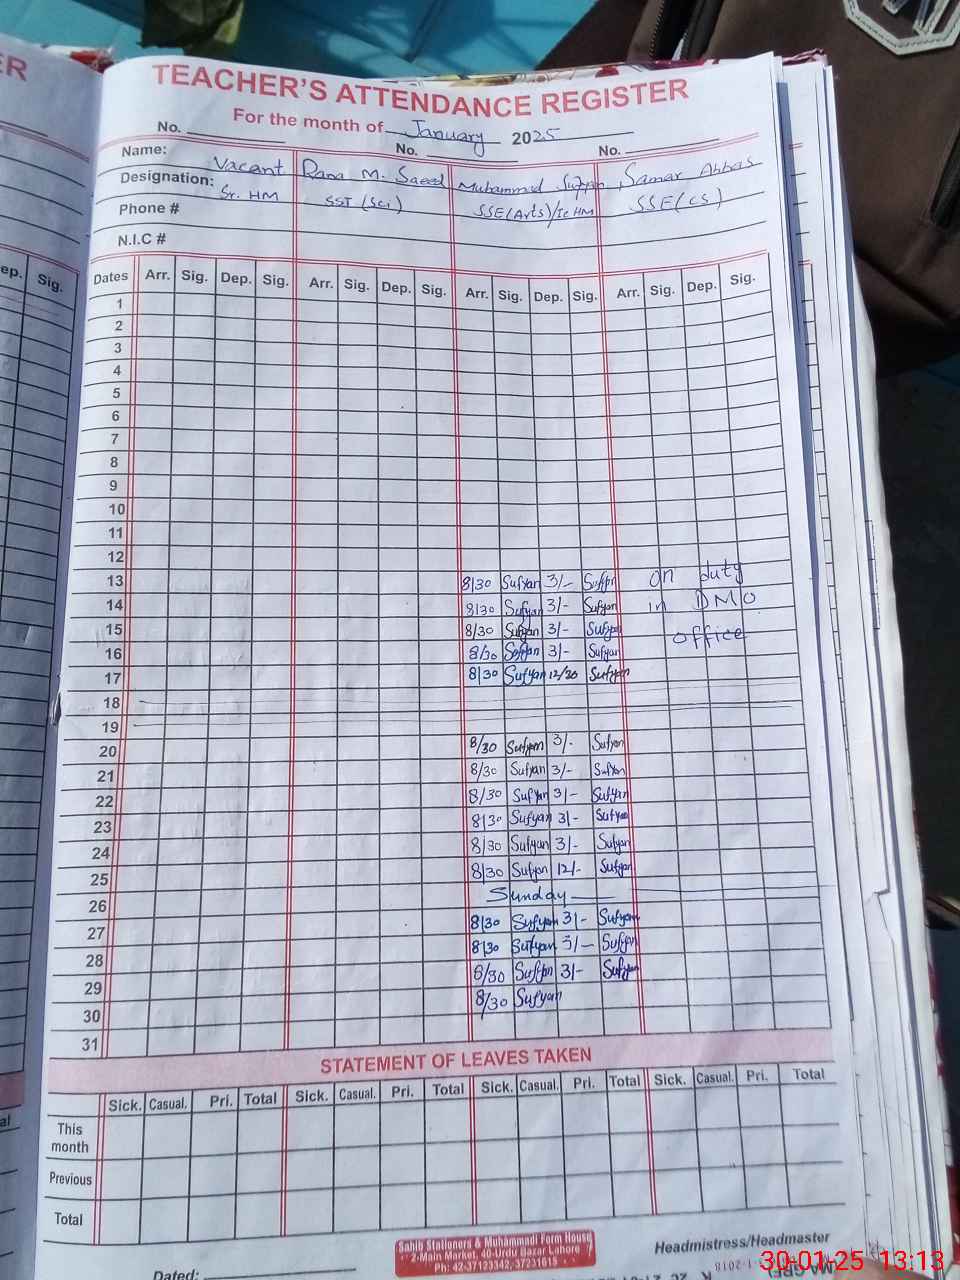 ER
TEACHER'S ATTENDANCE REGISTER
For the month of January 2025
No. No. No.
Name: Vacant Rana M. Saeed Muhammad Sufyan Samar Abbas
Designation: Sr. HM SST (Sci) SSE(Arts)/Ic HM SSE(CS)
Phone #
N.I.C #
ep. Sig.
Dates Arr. Sig. Dep. Sig. Arr. Sig. Dep. Sig. Arr. Sig. Dep. Sig. Arr. Sig. Dep. Sig.
1
2
3
4
5
6
7
8
9
10
11
12
13 8/30 Sufyan 3/- Sufyan on duty
14 8/30 Sufyan 3/- Sufyan in DMO
15 8/30 Sufyan 3/- Sufyan office
16 8/30 Sufyan 3/- Sufyan
17 8/30 Sufyan 12/30 Sufyan
18
19
20 8/30 Sufyan 3/- Sufyan
21 8/30 Sufyan 3/- Sufyan
22 8/30 Sufyan 3/- Sufyan
23 8/30 Sufyan 3/- Sufyan
24 8/30 Sufyan 3/- Sufyan
25 8/30 Sufyan 12/- Sufyan
26 Sunday
27 8/30 Sufyan 3/- Sufyan
28 8/30 Sufyan 3/- Sufyan
29 8/30 Sufyan 3/- Sufyan
30 8/30 Sufyan
31
STATEMENT OF LEAVES TAKEN
Sick. Casual. Pri. Total Sick. Casual. Pri. Total Sick. Casual. Pri. Total Sick. Casual. Pri. Total
This month
Previous
Total
Sahib Stationers & Muhammadi Form House
2-Main Market, 40-Urdu Bazar Lahore
Ph: 42-37123342, 37231615
Headmistress/Headmaster
Dated:
30-01-25 13:13